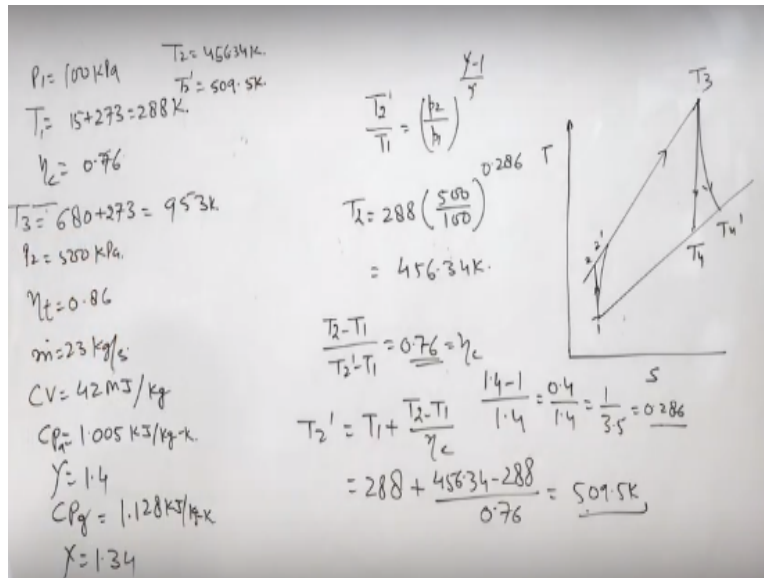 T2 = 456.34K.
P1 = 100 kPa
T2' = 509.5K.
T1 = 15+273 = 288K.
ηc = 0.76
T3 = 680+273 = 953K.
P2 = 500 kPa.
ηt = 0.86
ṁ = 23 kg/s.
CV = 42 MJ/kg
CPa = 1.005 KJ/kg-K.
γ = 1.4
CPg = 1.128 KJ/kg-K
γ = 1.34
T2'/T1 = (p2/p1)^(γ-1)/γ
T2 = 288 (500/100)^0.286
= 456.34K.
(T2-T1)/(T2'-T1) = 0.76 = ηc
(1.4-1)/1.4 = 0.4/1.4 = 1/3.5 = 0.286
T2' = T1 + (T2-T1)/ηc
= 288 + (456.34-288)/0.76 = 509.5K
T3
T
2 2'
T4 T4'
1
S